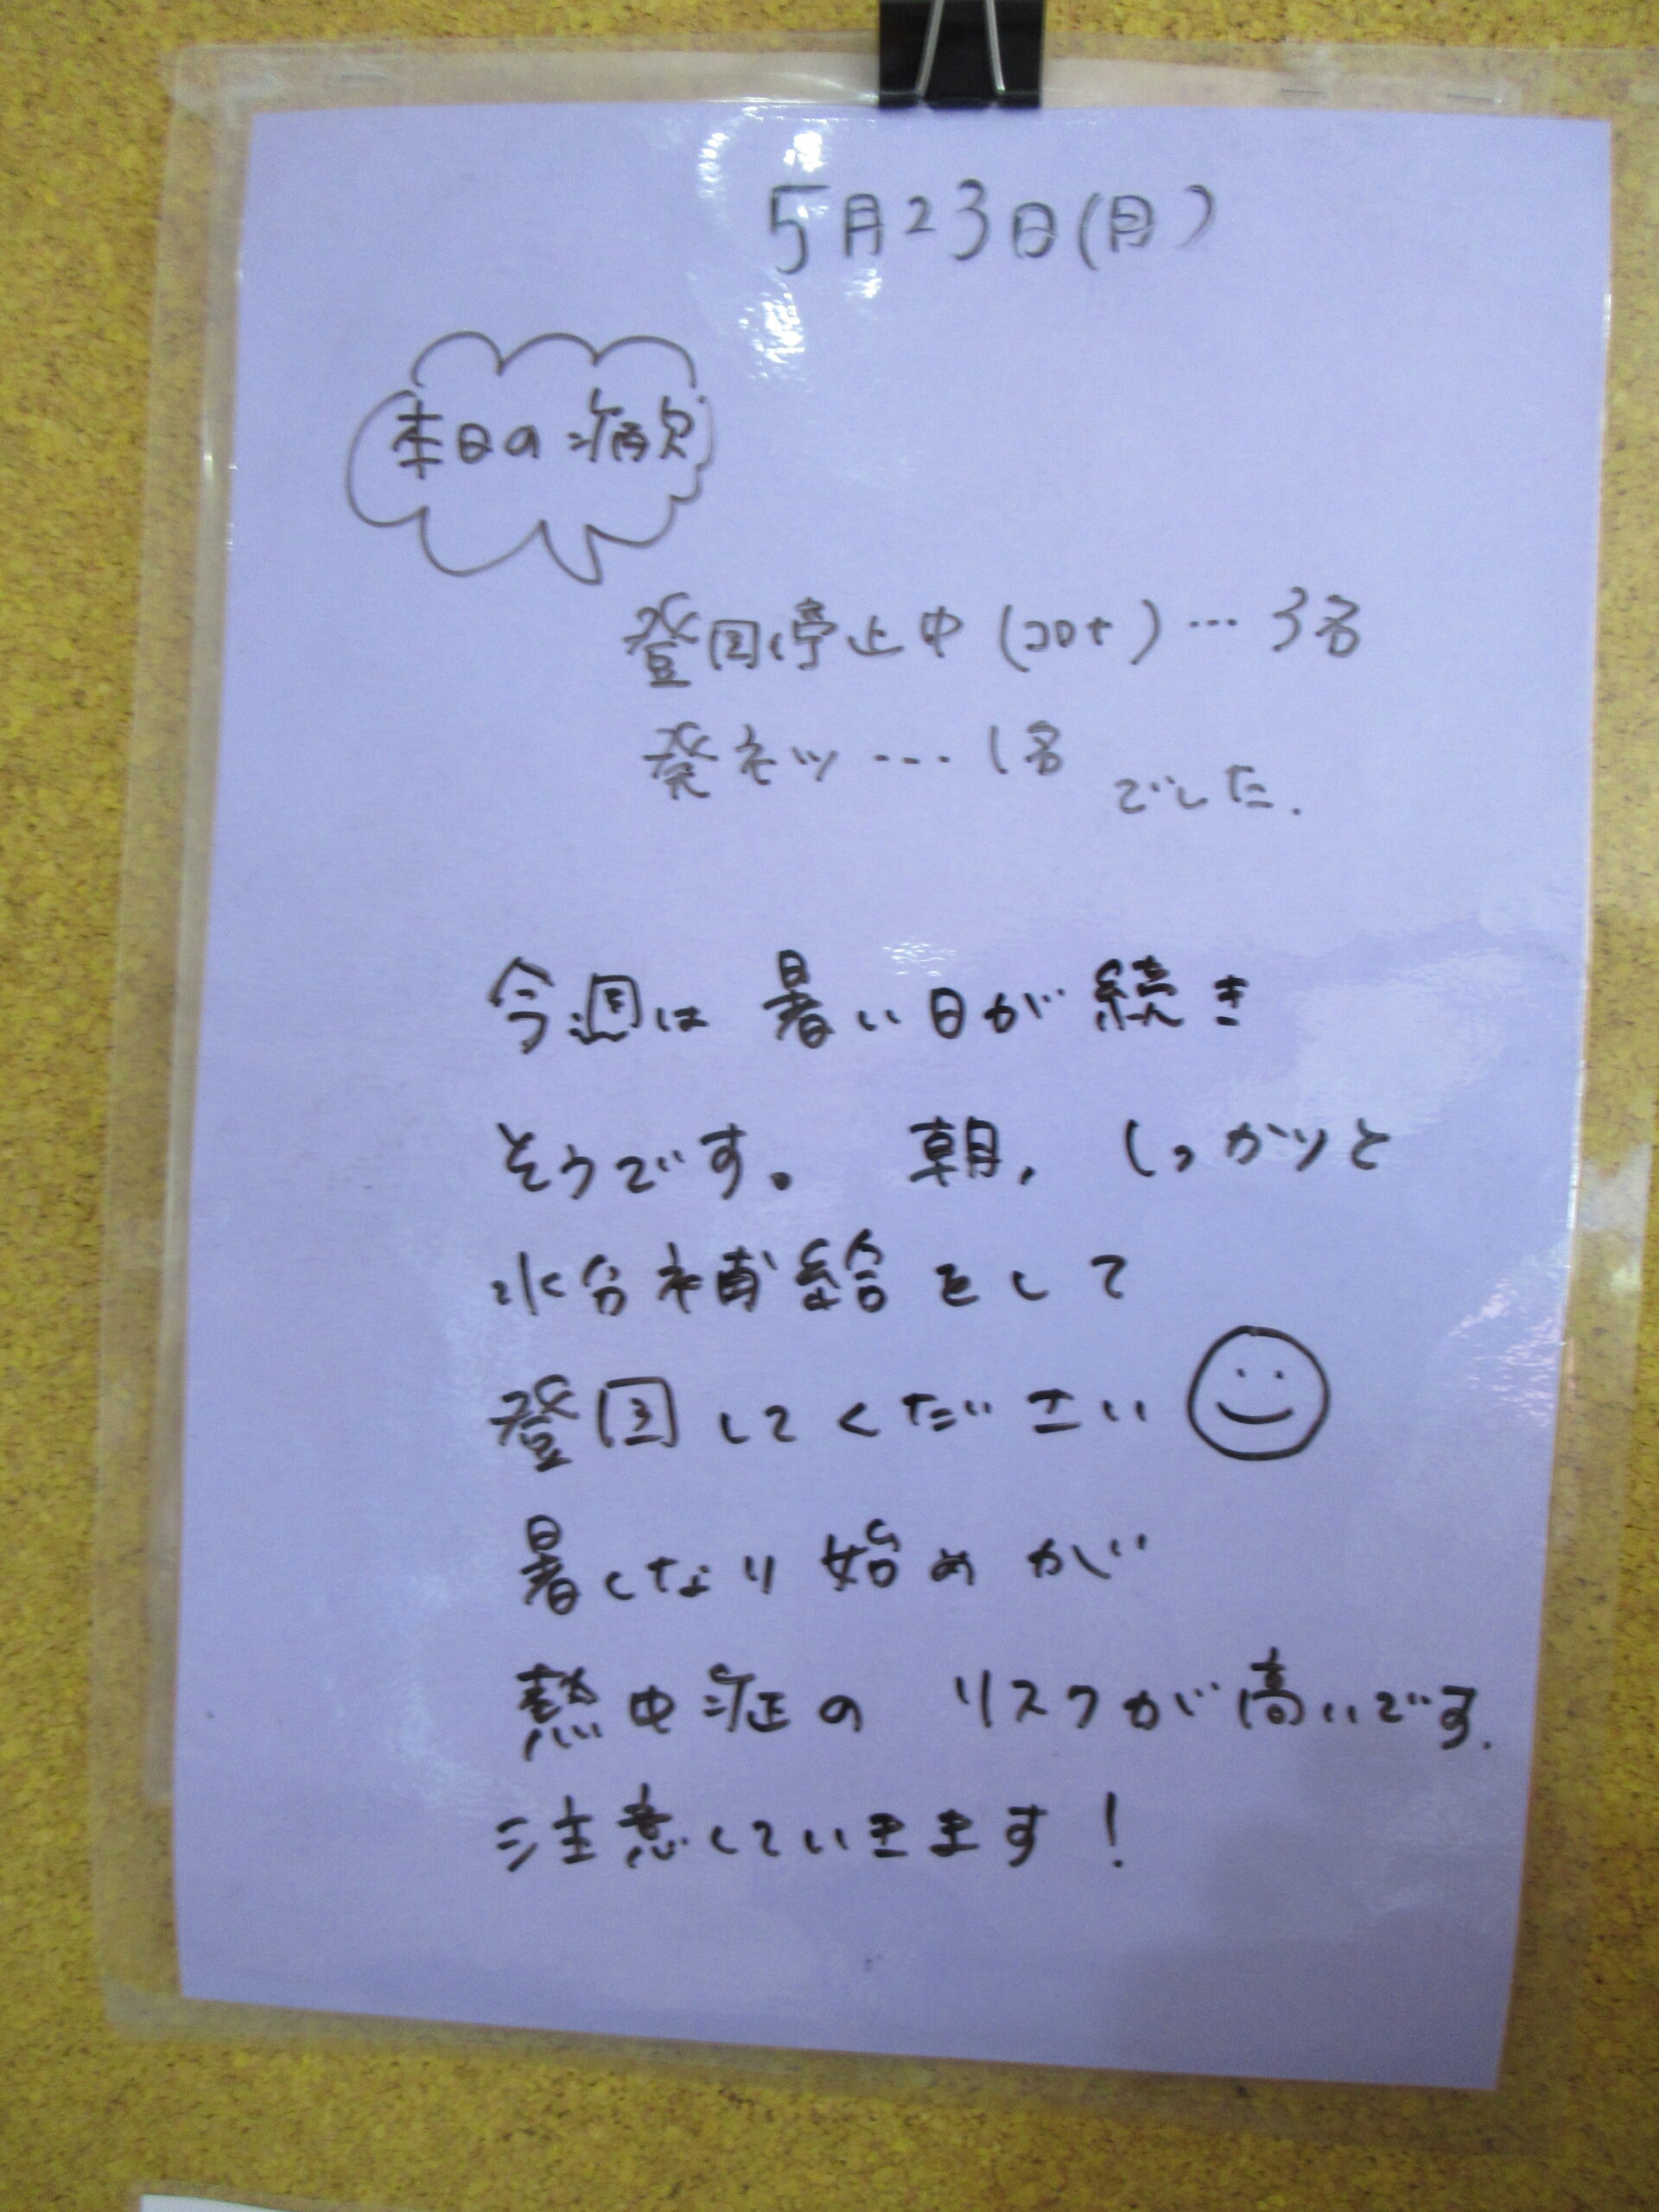 5月23日(月)
本日の病欠
登園停止中(コロナ)…3名
発ネツ…1名
でした.
今週は暑い日が続き
そうです。朝,しっかりと
水分補給をして
登園してください
暑くなり始めが
熱中症のリスクが高いです.
注意していきます!